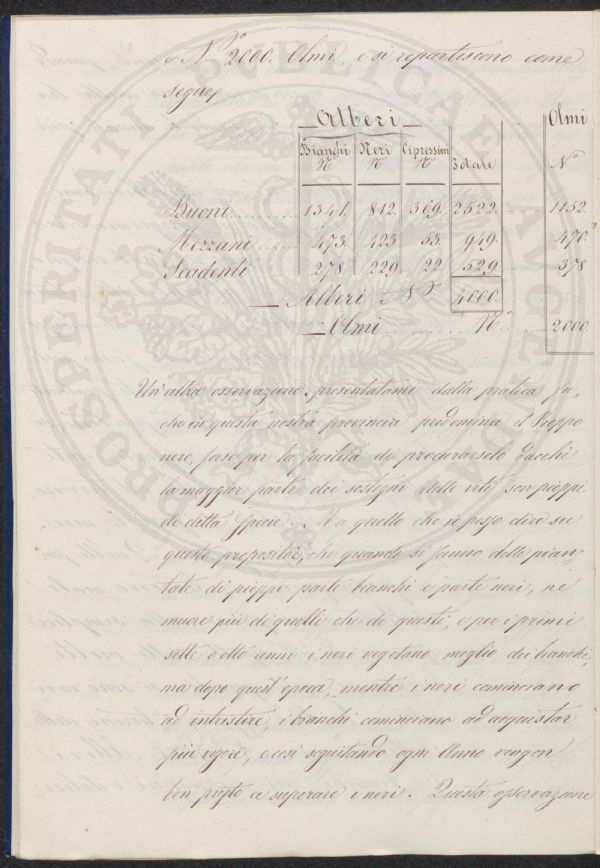 e N.º 2000. Olmi, e si repartiscono come
segue
Alberi Olmi
Bianchi Neri Cipressini Totale
N.º N.º N.º N.º
Buoni 1341. 812. 369. 2522. 1152.
Mezzani 473. 423. 53. 949. 470.
Scadenti 278. 229. 22. 529. 378
Alberi N.º 4000.
Olmi N.º 2000.
Un'altra osservazione presentatami dalla pratica fu,
che in questa nostra provincia predomina il Pioppo
nero, forse per la facilità di procurarselo dacchè
la maggior parte dei sostegni delle viti son pioppi
di detta specie. Ma quello che si posso dire su
questo proposito, che quando si fanno delle pian-
tate di pioppi parte bianchi e parte neri, ne
muore più di quelli che di questi, e per i primi
sette o otto anni i neri vegetano meglio dei bianchi,
ma dopo quest'epoca, mentre i neri cominciano
ad intristire, i bianchi cominciano ad acquistar
più vigore, e così seguitando ogni Anno vengon
ben presto a superare i neri. Questa osservazione
PROSPERITATI PUBLICAE AUGENDAE